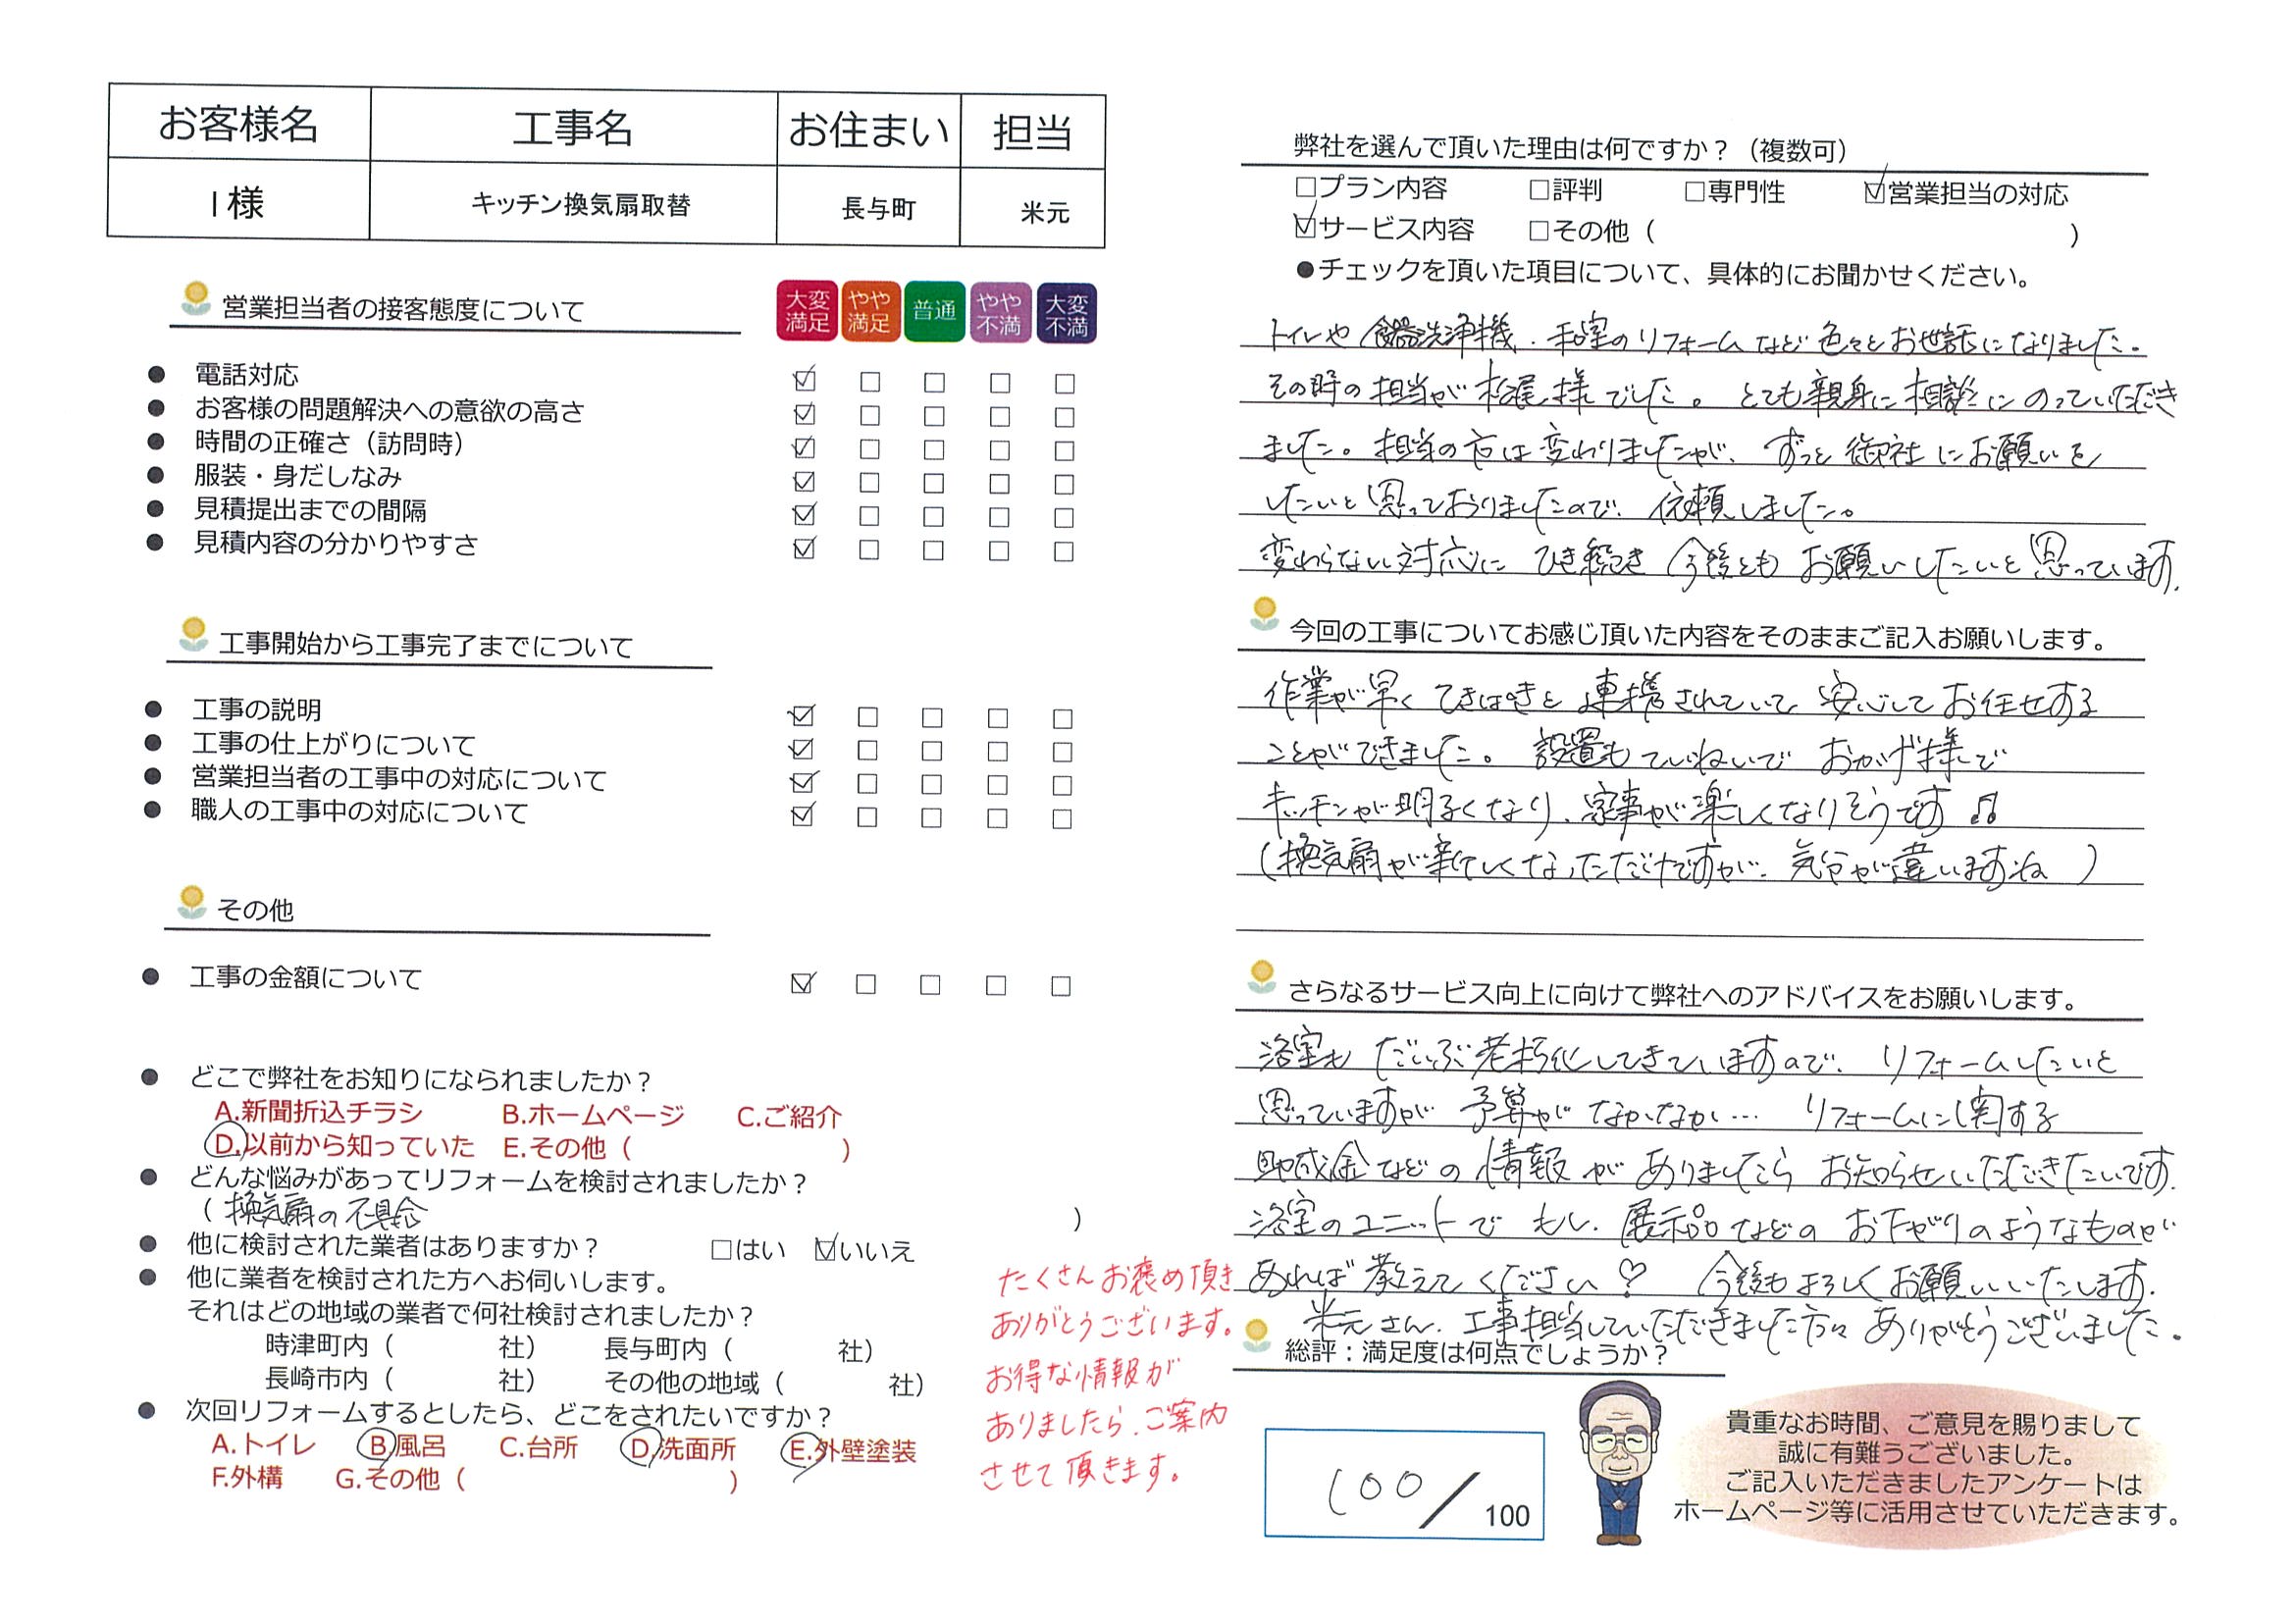 お客様名 工事名 お住まい 担当
I様 キッチン換気扇取替 長与町 米元
営業担当者の接客態度について
大変満足 やや満足 普通 やや不満 大変不満
● 電話対応 ☑ □ □ □ □
● お客様の問題解決への意欲の高さ ☑ □ □ □ □
● 時間の正確さ（訪問時） ☑ □ □ □ □
● 服装・身だしなみ ☑ □ □ □ □
● 見積提出までの間隔 ☑ □ □ □ □
● 見積内容の分かりやすさ ☑ □ □ □ □
工事開始から工事完了までについて
● 工事の説明 ☑ □ □ □ □
● 工事の仕上がりについて ☑ □ □ □ □
● 営業担当者の工事中の対応について ☑ □ □ □ □
● 職人の工事中の対応について ☑ □ □ □ □
その他
● 工事の金額について ☑ □ □ □ □
● どこで弊社をお知りになられましたか？
A.新聞折込チラシ B.ホームページ C.ご紹介
D.以前から知っていた E.その他（ ）
● どんな悩みがあってリフォームを検討されましたか？
（ 換気扇の不具合 ）
● 他に検討された業者はありますか？ □はい ☑いいえ
● 他に業者を検討された方へお伺いします。
それはどの地域の業者で何社検討されましたか？
時津町内（ 社） 長与町内（ 社）
長崎市内（ 社） その他の地域（ 社）
● 次回リフォームするとしたら、どこをされたいですか？
A.トイレ B.風呂 C.台所 D.洗面所 E.外壁塗装
F.外構 G.その他（ ）
たくさんお褒め頂き
ありがとうございます。
お得な情報が
ありましたら、ご案内
させて頂きます。
弊社を選んで頂いた理由は何ですか？（複数可）
□プラン内容 □評判 □専門性 ☑営業担当の対応
☑サービス内容 □その他（ ）
●チェックを頂いた項目について、具体的にお聞かせください。
トイレや食器洗浄機、和室のリフォームなど色々とお世話になりました。
その時の担当が松尾様でした。とても親身に相談にのっていただき
ました。担当の方は変わりましたが、ずっと御社にお願いを
したいと思っておりましたので、依頼しました。
変わらない対応に ひき続き 今後とも お願いしたいと思っています。
今回の工事についてお感じ頂いた内容をそのままご記入お願いします。
作業が早く てきぱきと連携されていて 安心してお任せする
ことができました。設置もていねいで おかげ様で
キッチンが明るくなり、家事が楽しくなりそうです♫
（換気扇が新しくなっただけですが、気分が違いますね）
さらなるサービス向上に向けて弊社へのアドバイスをお願いします。
浴室も だいぶ老朽化してきていますので、リフォームしたいと
思っていますが 予算がなかなか… リフォームに関する
助成金などの情報がありましたら お知らせいただきたいです。
浴室のユニットで もし、展示品などの お下がりのようなものが
あれば教えてください♡ 今後もよろしくお願いいたします。
米元さん、工事担当していただきました方々 ありがとうございました。
総評：満足度は何点でしょうか？
100／100
貴重なお時間、ご意見を賜りまして
誠に有難うございました。
ご記入いただきましたアンケートは
ホームページ等に活用させていただきます。